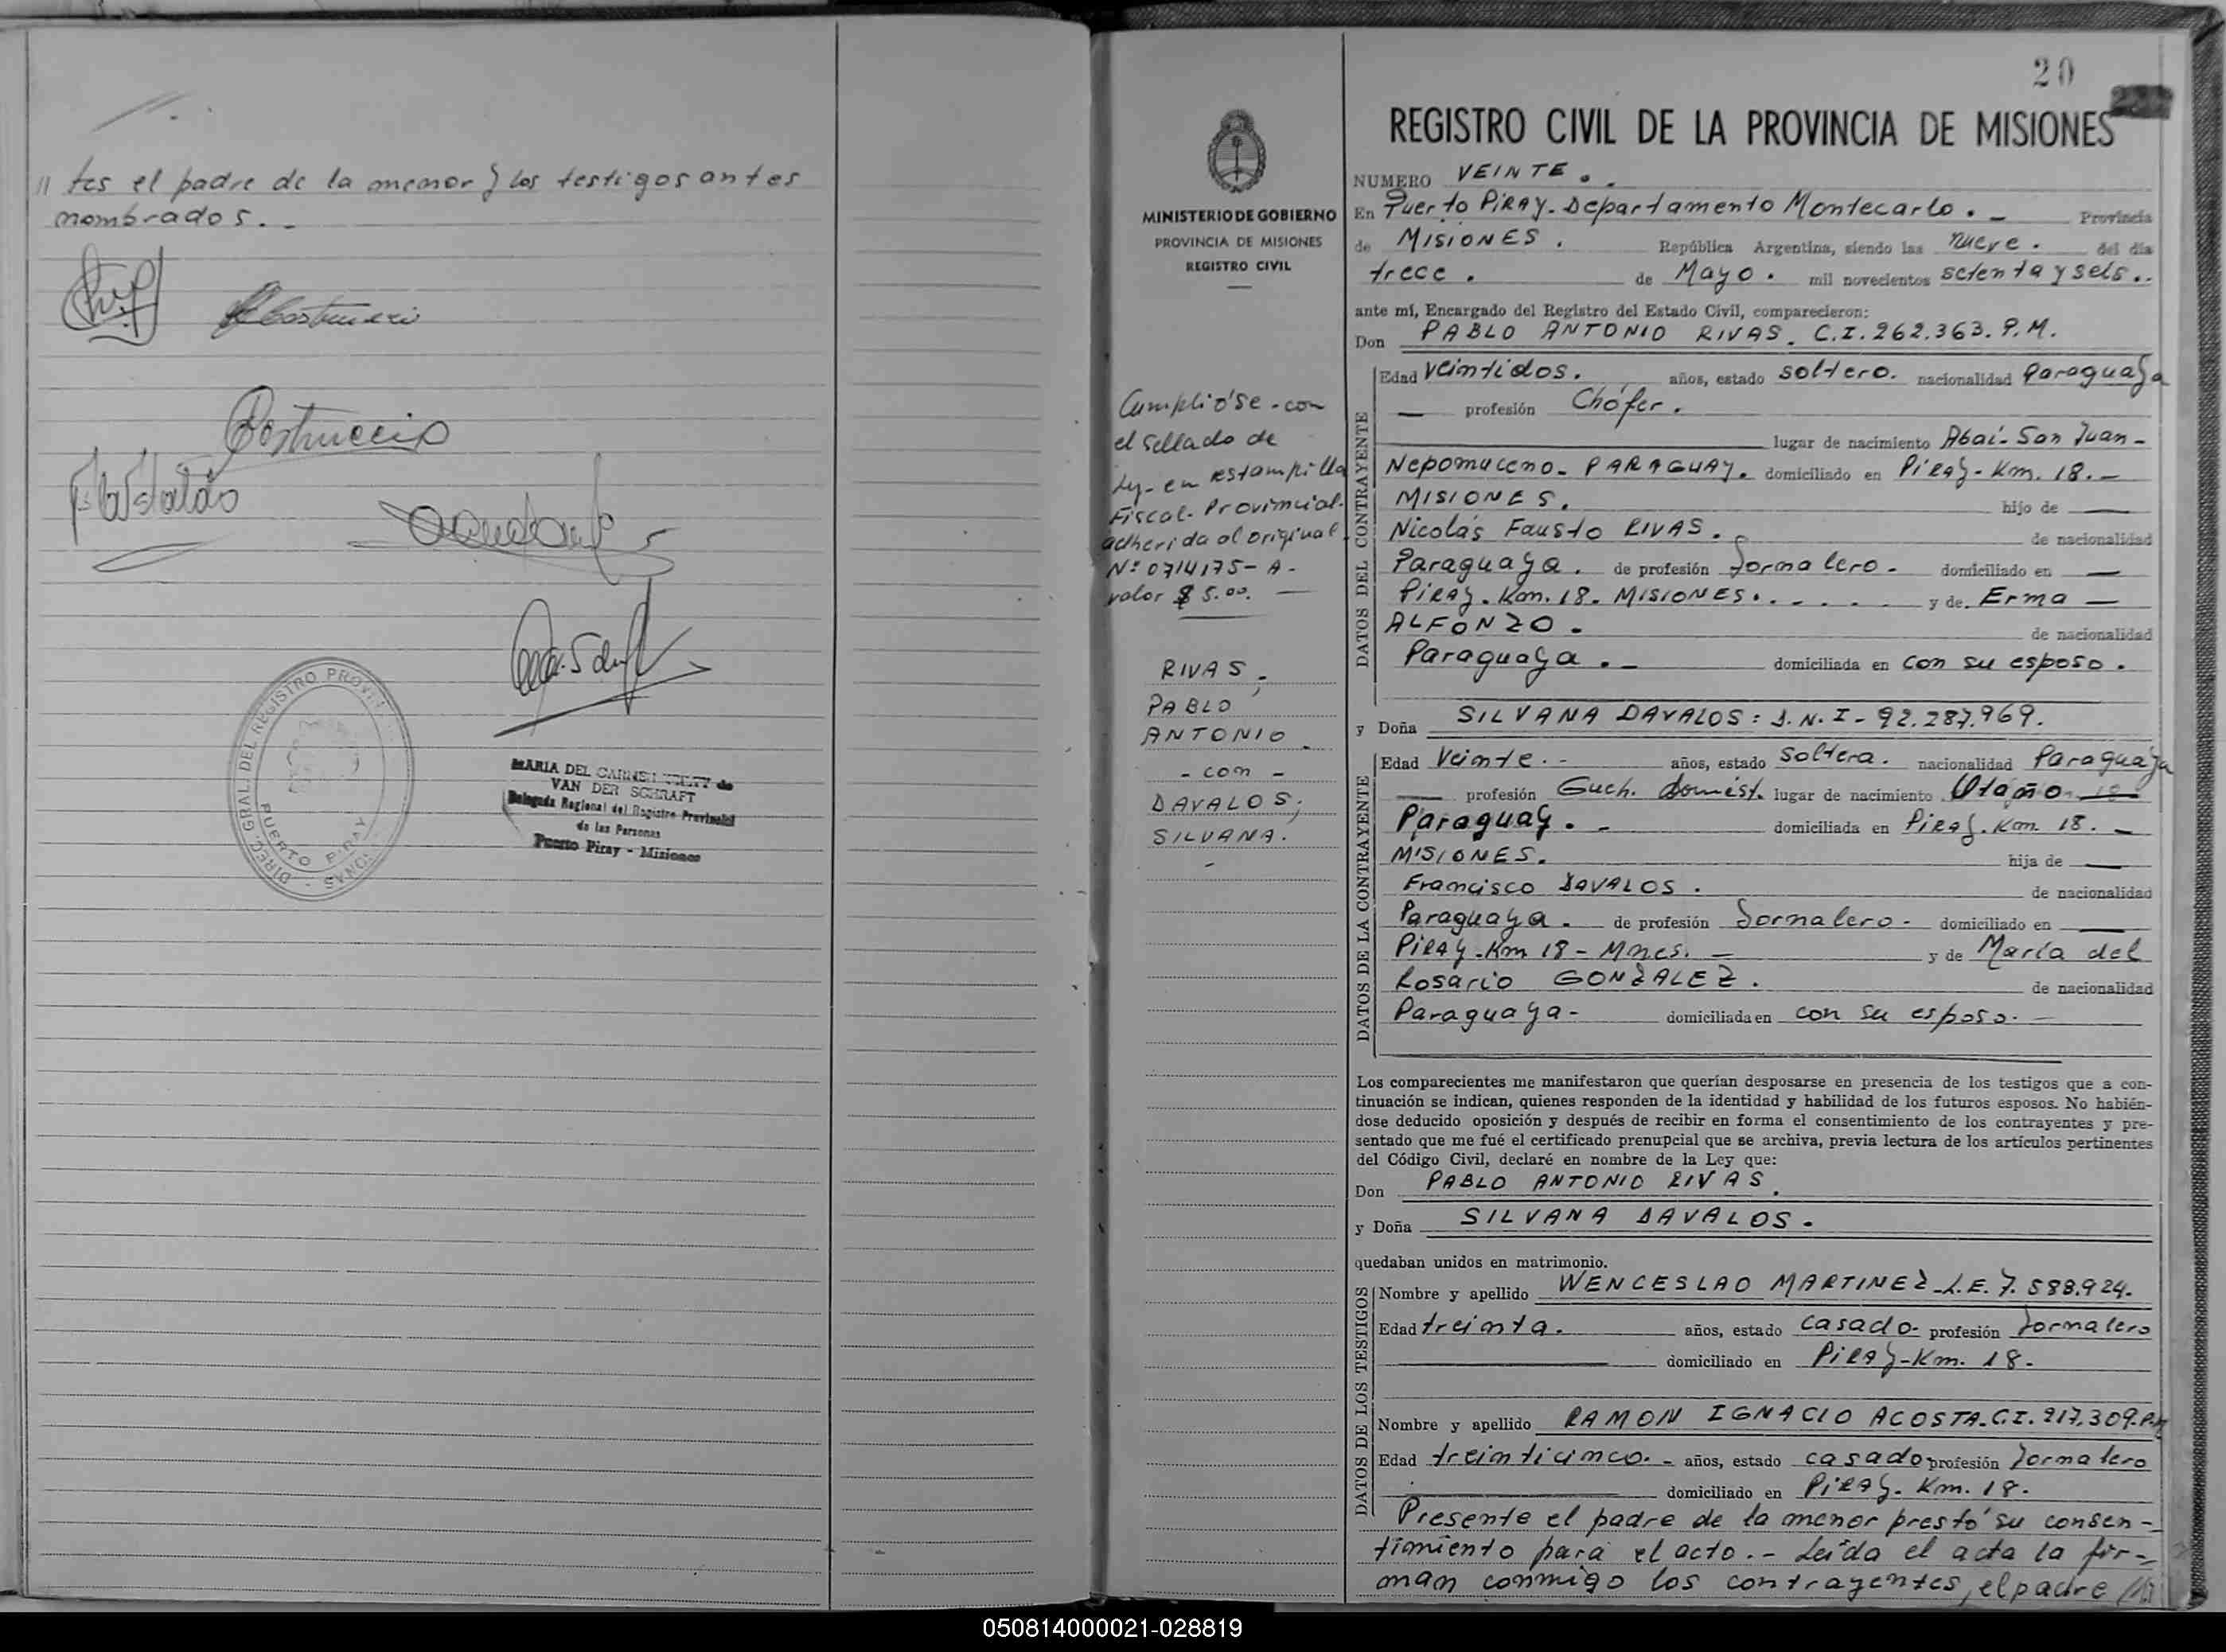 // tes el padre de la menor y los testigos antes
nombrados. -
DIREC. GRAL. DEL REGISTRO PROVIN
PUERTO PIRAY
MARIA DEL CARMEN de
VAN DER SCHRAFT
Delegada Regional del Registro Provincial
de las Personas
Puerto Piray - Misiones
MINISTERIO DE GOBIERNO
PROVINCIA DE MISIONES
REGISTRO CIVIL
Cumplióse - con
el sellado de
Ley - en estampilla
Fiscal - Provincial -
adherida al original
Nº 0714175 - A -
valor $ 5.00. —
RIVAS,
PABLO
ANTONIO
- con -
DAVALOS;
SILVANA.
20
REGISTRO CIVIL DE LA PROVINCIA DE MISIONES
NUMERO VEINTE.
En Puerto Piray - Departamento Montecarlo. - Provincia
de MISIONES. República Argentina, siendo las nueve. del día
trece. de Mayo. mil novecientos setenta y seis..
ante mí, Encargado del Registro del Estado Civil, comparecieron:
Don PABLO ANTONIO RIVAS. C.I. 262.363. P.M.
DATOS DEL CONTRAYENTE
Edad veintidos. años, estado soltero. nacionalidad Paraguaya
— profesión Chófer.
lugar de nacimiento Abaí - San Juan -
Nepomuceno - PARAGUAY. domiciliado en Piray - Km. 18. -
MISIONES. hijo de —
Nicolás Fausto RIVAS. de nacionalidad
Paraguaya. de profesión Jornalero - domiciliado en —
Piray. Km. 18. MISIONES. . - . - . y de Erma —
ALFONZO. de nacionalidad
Paraguaya. - domiciliada en con su esposo.
y Doña SILVANA DAVALOS: D.N.I - 92.287.969.
DATOS DE LA CONTRAYENTE
Edad Veinte. - años, estado soltera. nacionalidad Paraguaya
— profesión Queh. domést. lugar de nacimiento Otaño
Paraguay. - domiciliada en Piray. Km 18. -
MISIONES. hija de —
Francisco DAVALOS. de nacionalidad
Paraguaya. de profesión Jornalero - domiciliado en —
Piray - Km 18 - Mnes. - y de María del
Rosario GONZALEZ. de nacionalidad
Paraguaya - domiciliada en con su esposo. -
Los comparecientes me manifestaron que querían desposarse en presencia de los testigos que a con-
tinuación se indican, quienes responden de la identidad y habilidad de los futuros esposos. No habién-
dose deducido oposición y después de recibir en forma el consentimiento de los contrayentes y pre-
sentado que me fué el certificado prenupcial que se archiva, previa lectura de los artículos pertinentes
del Código Civil, declaré en nombre de la Ley que:
Don PABLO ANTONIO RIVAS.
y Doña SILVANA DAVALOS.
quedaban unidos en matrimonio.
DATOS DE LOS TESTIGOS
Nombre y apellido WENCESLAO MARTINEZ - L.E. 7.588.924.
Edad treinta. años, estado casado - profesión Jornalero
domiciliado en Piray - Km. 18 -
Nombre y apellido RAMON IGNACIO ACOSTA - C.I. 217.309. P.M
Edad treinticinco. - años, estado casado profesión Jornalero
domiciliado en Piray - Km. 18.
Presente el padre de la menor prestó su consen-
timiento para el acto. - Leída el acta la fir-
man conmigo los contrayentes, el padre
050814000021-028819